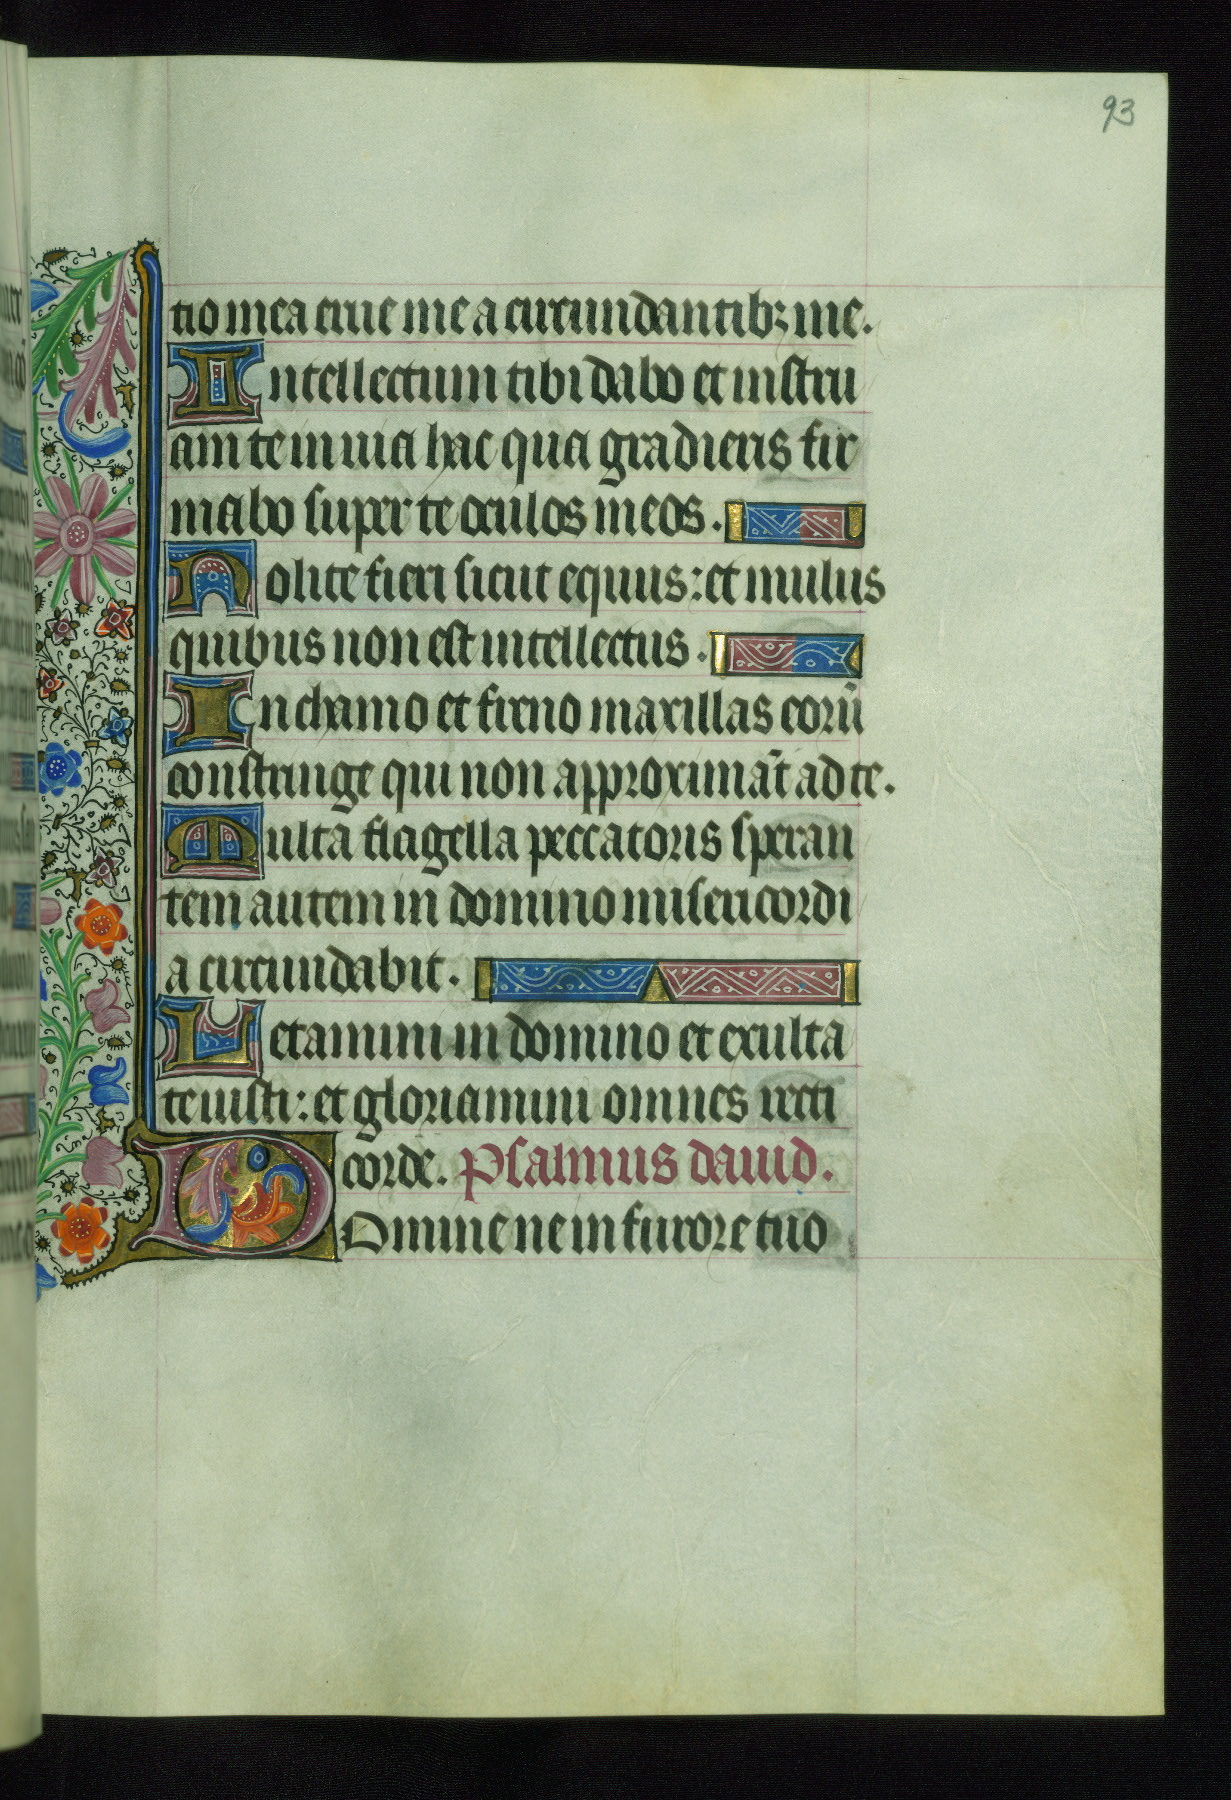 93
tio mea erue me a circundantibꝫ me.
Intellectum tibi dabo et instru
am te in uia hac qua gradieris fir
mabo super te oculos meos.
Nolite fieri sicut equus: et mulus
quibus non est intellectus.
In chamo et freno maxillas eorū
constringe qui non approximāt ad te.
Multa flagella peccatoris speran
tem autem in domino misericordi
a circundabit.
Letamini in domino et exulta
te iusti: et gloriamini omnes recti
corde. Psalmus dauid.
Domine ne in furore tuo